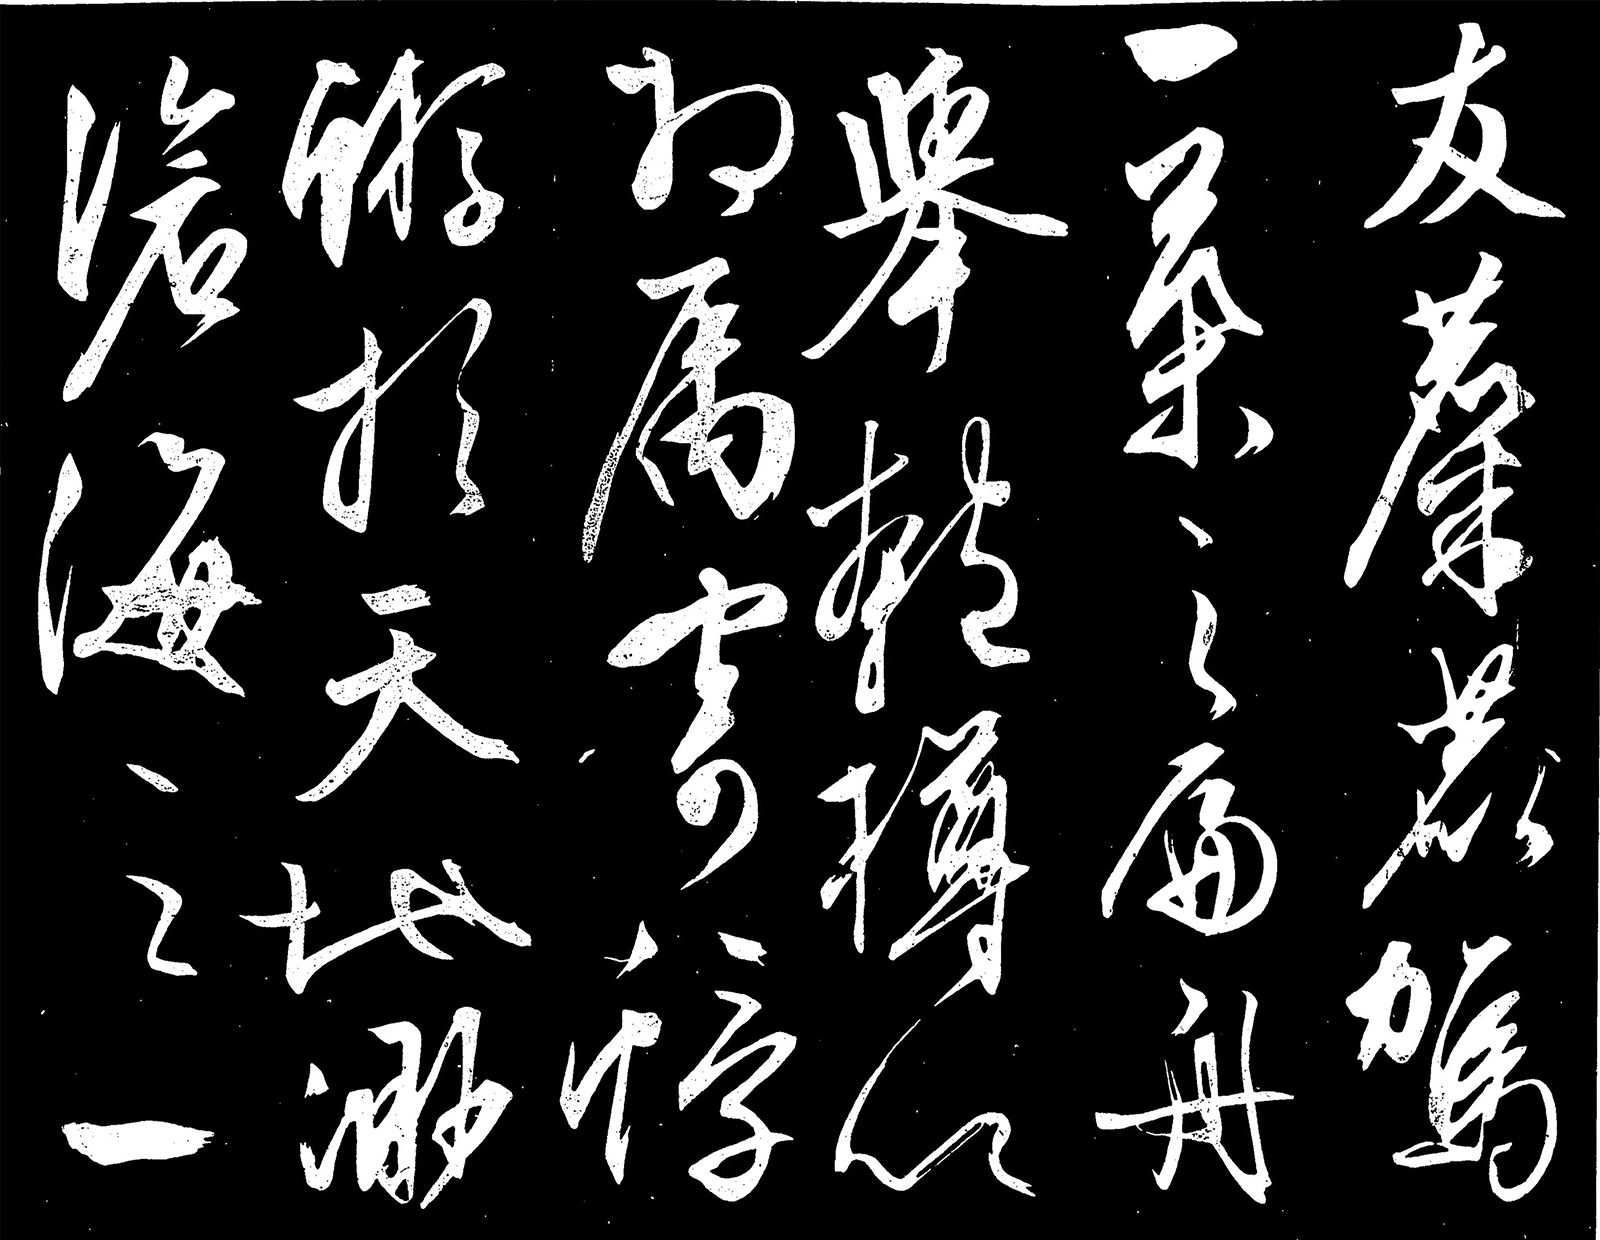 友麋鹿駕
一葉之扁舟
舉匏樽以
相属寄蜉
蝣於天地渺
滄海之一